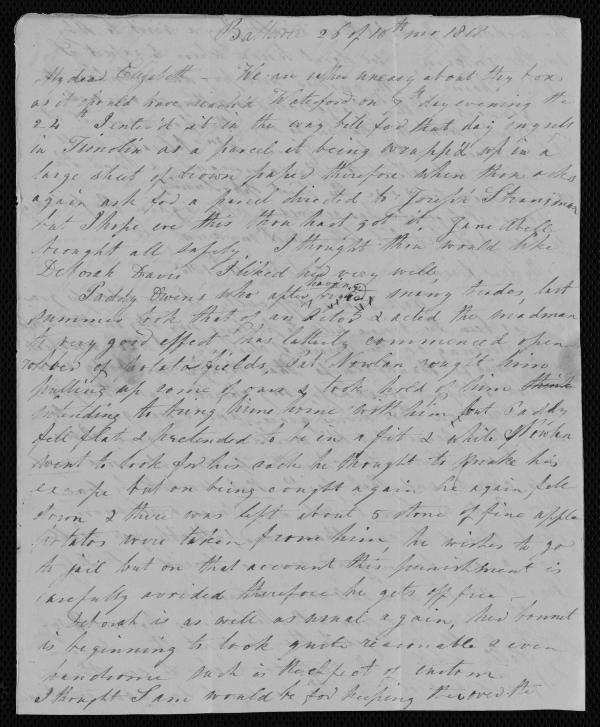 Ballitore 26 of 10th mo 1818
My dear Elizabeth - We are rather uneasy about thy box
as it should have reach'd Waterford on 7th day evening the
24th I enter'd it in the way bill for that day myself
in Timolin as a parcel it being wrapp'd up in a
large sheet of brown paper therefore when thou asks
again ask for a parcel directed to Joseph Strangman
but I hope ere this thou hast got it. Jane Abell
brought all safely I thought thou would like
Deborah Davis I liked her very well
Paddy Owens who after having tried many trades, last
summer took that of an actor & acted the madman
to very good effect has latterly commenced open
robber of potato fields. Pat Nowlan caught him
pulling up some of ours & took hold of him
intending to bring him home with him, but Paddy
fell flat & pretended to be in a fit & while Nowlan
went to look for his sack he thought to make his
escape but on being caught again he again fell
down & there was left about 5 stone of fine apple
potatos were taken from him he wishes to go
to jail but on that account this punishment is
carefully avoided therefore he gets off free -
Deborah is as well as usual again, her bonnet
is beginning to look quite reasonable & even
handsome such is the effect of custom
I thought Sam would be for keeping thee over the